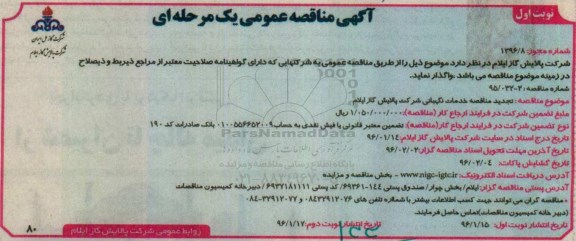 نوبت اول
آگهی مناقصه عمومی یک مرحله ای
شرکت ملی گاز ایران
شرکت پالایش گاز ایلام
شماره مجوز: ۱۳۹۶/۸
شرکت پالایش گاز ایلام در نظر دارد موضوع ذیل را از طریق مناقصه عمومی به شرکتهایی که دارای گواهینامه صلاحیت معتبر از مراجع ذیربط و ذیصلاح
در زمینه موضوع مناقصه می باشد ،واگذار نماید.
شماره مناقصه: ۹۵/۰۳۲-۲
موضوع مناقصه: تجدید مناقصه خدمات نگهبانی شرکت پالایش گاز ایلام
مبلغ تضمین شرکت در فرایند ارجاع کار (مناقصه): ۱/۰۵۰/۰۰۰/۰۰۰ ریال
نوع تضمین شرکت در فرایند ارجاع کار(مناقصه): تضمین معتبر قانونی یا فیش نقدی به حساب ۰۱۰۰۵۵۶۶۵۲۰۰۹ بانک صادرات کد ۱۹۰
تاریخ درج اسناد در سایت شرکت پالایش گاز ایلام: ۹۶/۰۱/۱۴
تاریخ آخرین مهلت تحویل اسناد مناقصه گزار: ۹۶/۰۲/۰۳
تاریخ گشایش پاکات: ۹۶/۰۲/۰۴
آدرس دریافت اسناد الکترونیک: www.nigc-igtc.ir - بخش مناقصه و مزایده
آدرس پستی مناقصه گزار: ایلام / بخش چوار/ صندوق پستی ۱۴۴-۶۹۳۶۱ / کد پستی ۶۹۳۷۱۸۱۱۱۱ / دبیرخانه کمیسیون مناقصات
مناقصه گران می توانند جهت کسب اطلاعات بیشتر با شماره تلفن های ۰۸۴۳۲۹۱۲۰۷۶ و ۰۸۴-۳۲۹۱۲۰۷۷
(دبیرخانه کمیسیون مناقصات)تماس حاصل فرمایند.
تاریخ انتشار نوبت اول: ۹۶/۱/۱۵
تاریخ انتشار نوبت دوم: ۹۶/۱/۱۷
روابط عمومی شرکت پالایش گاز ایلام
۸۰
ParsNamadData